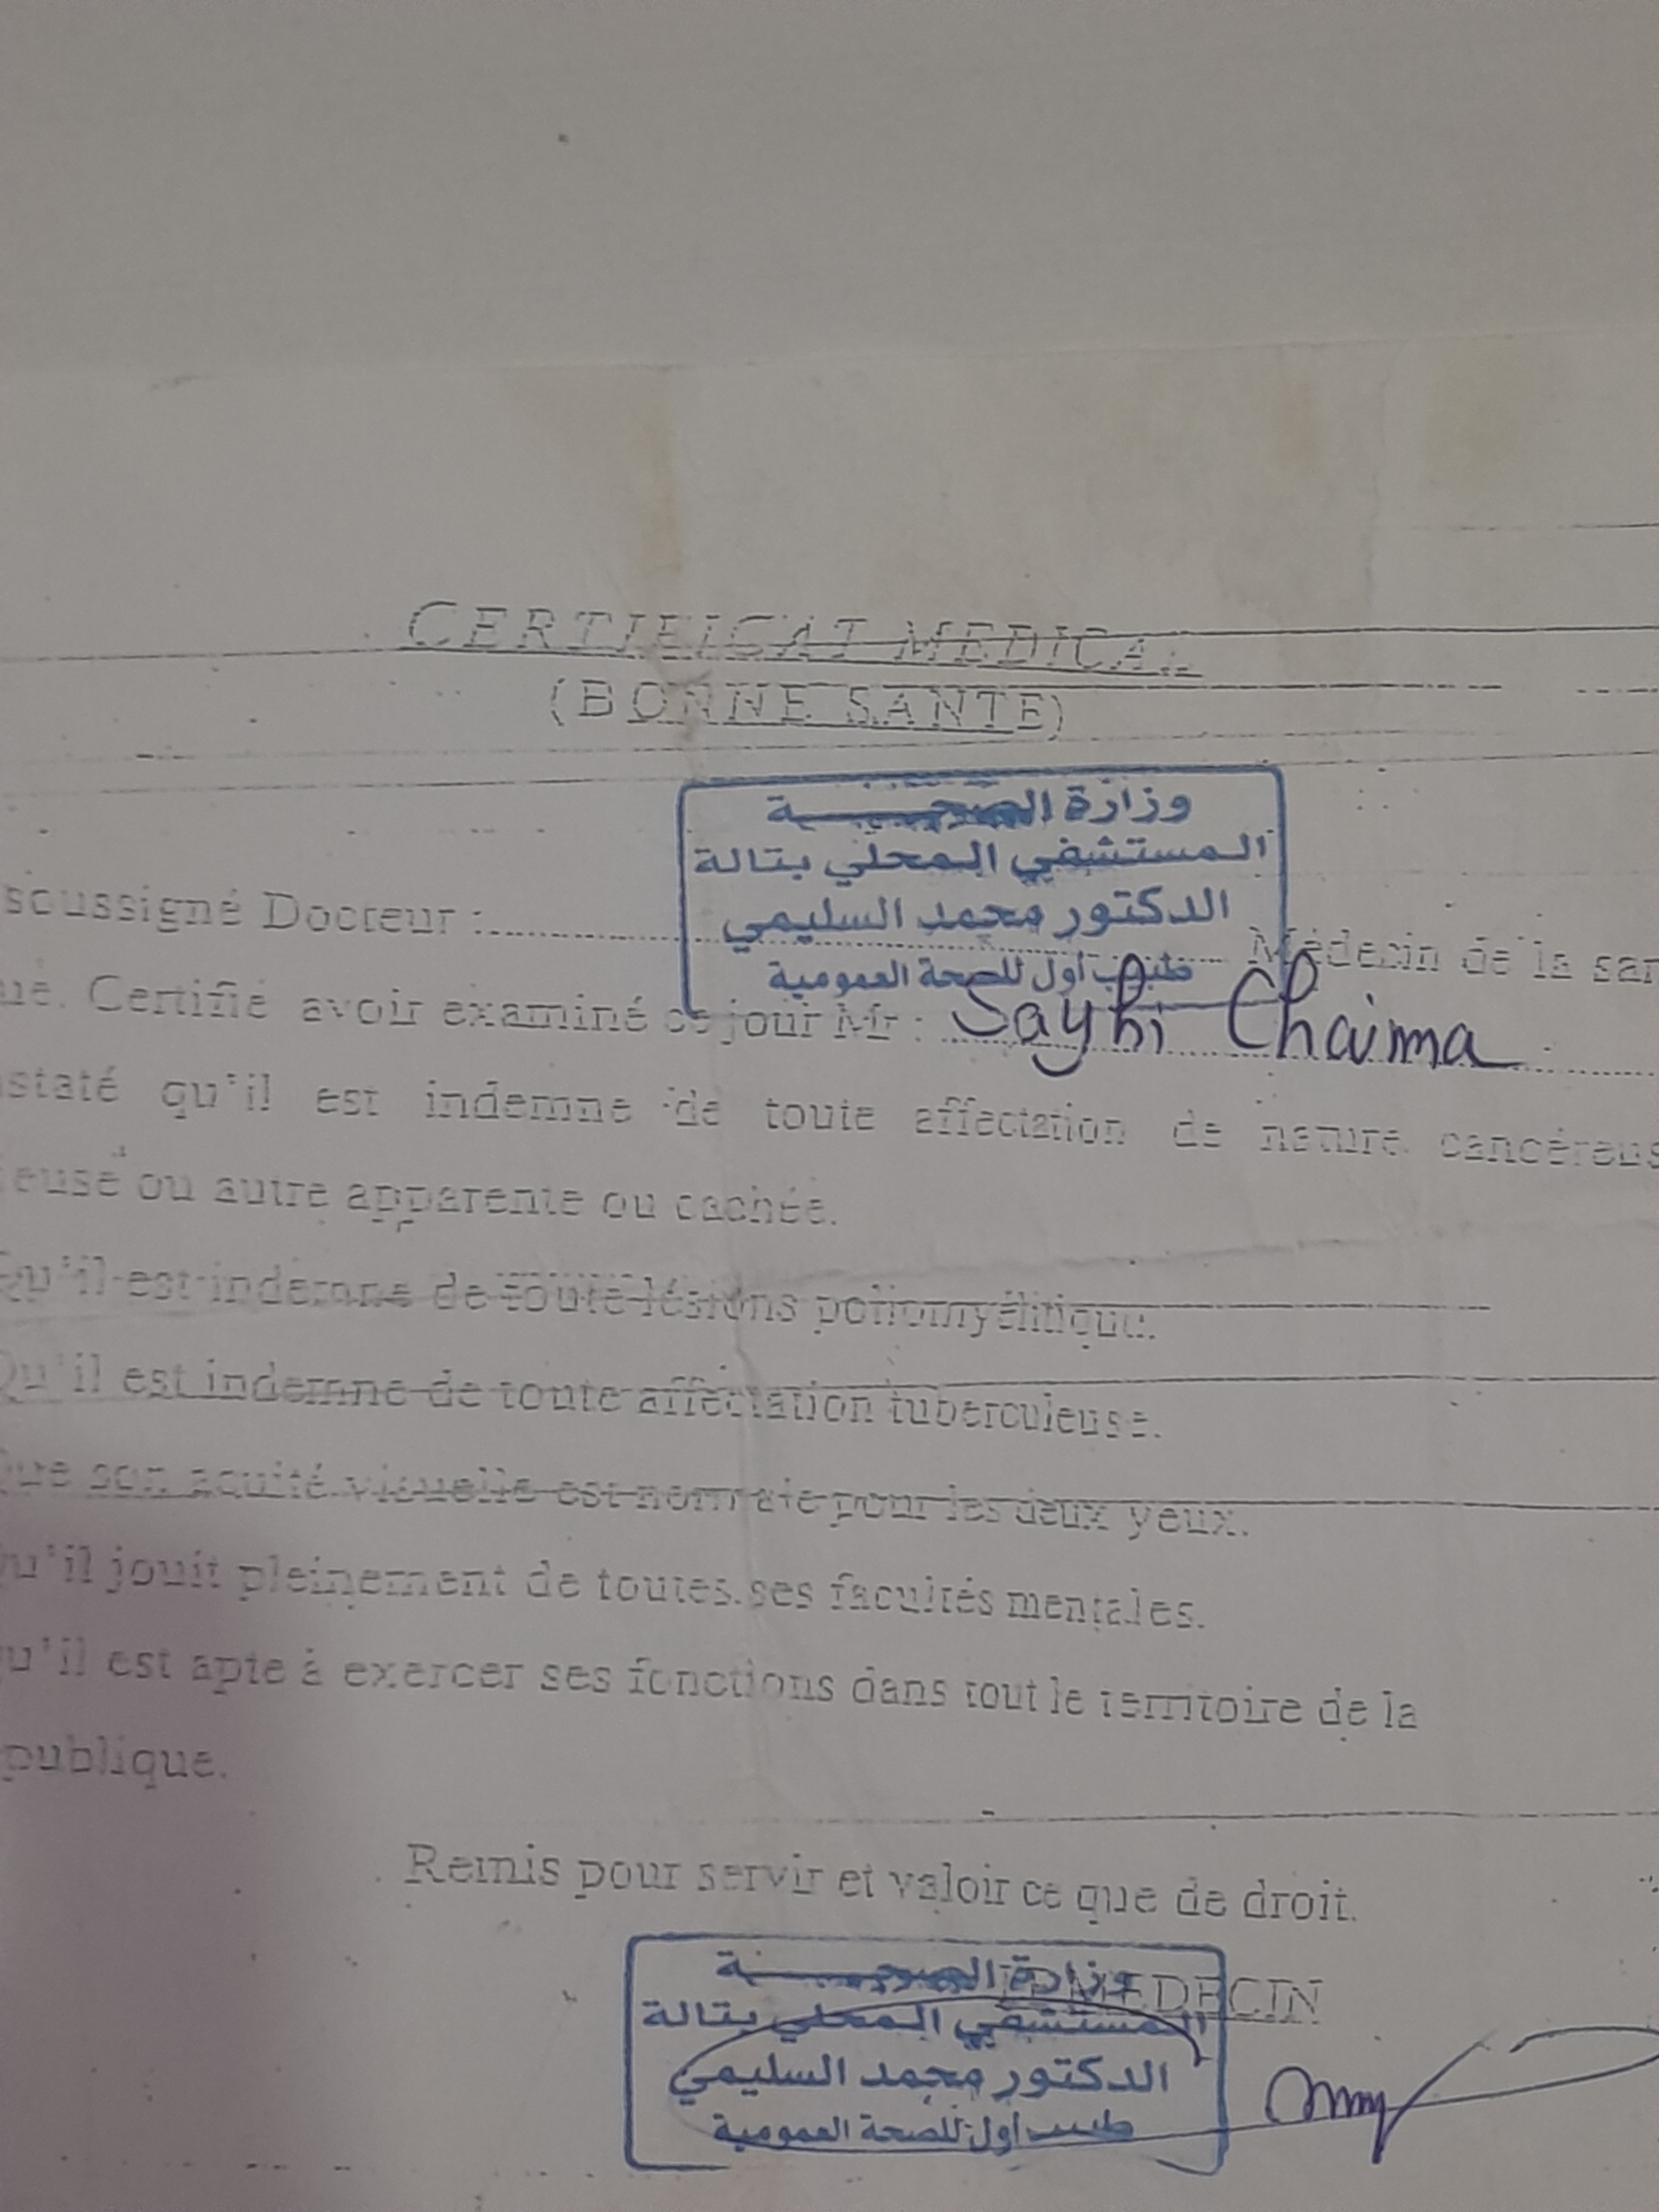 CERTIFICAT MEDICAL
(BONNE SANTE)
وزارة الصحة
المستشفي المحلي بتالة
الدكتور محمد السليمي
طبيب أول للصحة العمومية
soussigné Docteur : Médecin de la san
ue. Certifie avoir examiné ce jour Mr : Sayhi Chaima
staté qu'il est indemne de toute affectation de nature cancéreus
ieuse ou autre apparente ou cachée.
Qu'il est indemne de toute lésions poliomyélitique.
Qu'il est indemne de toute affectation tuberculeuse.
Que son acuité visuelle est normale pour les deux yeux.
Qu'il jouit pleinement de toutes ses facultés mentales.
Qu'il est apte à exercer ses fonctions dans tout le territoire de la
publique.
Remis pour servir et valoir ce que de droit.
LE MEDECIN
وزارة الصحة
المستشفي المحلي بتالة
الدكتور محمد السليمي
طبيب أول للصحة العمومية